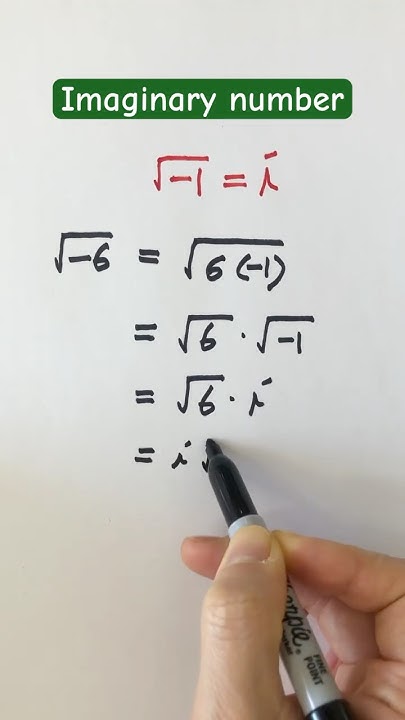 Imaginary number
√-1 = i
√-6 = √6(-1)
= √6 · √-1
= √6 · i
= i √
FINE
POINT